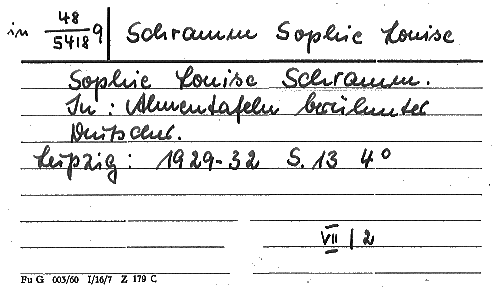 in 48/5418 q Schramm Sophie Louise
Sophie Louise Schramm.
In: Ahnentafeln berühmter
Deutscher.
Leipzig: 1929-32 S. 13 4°
VII / 2
Fu G 003/60 I/16/7 Z 179 C